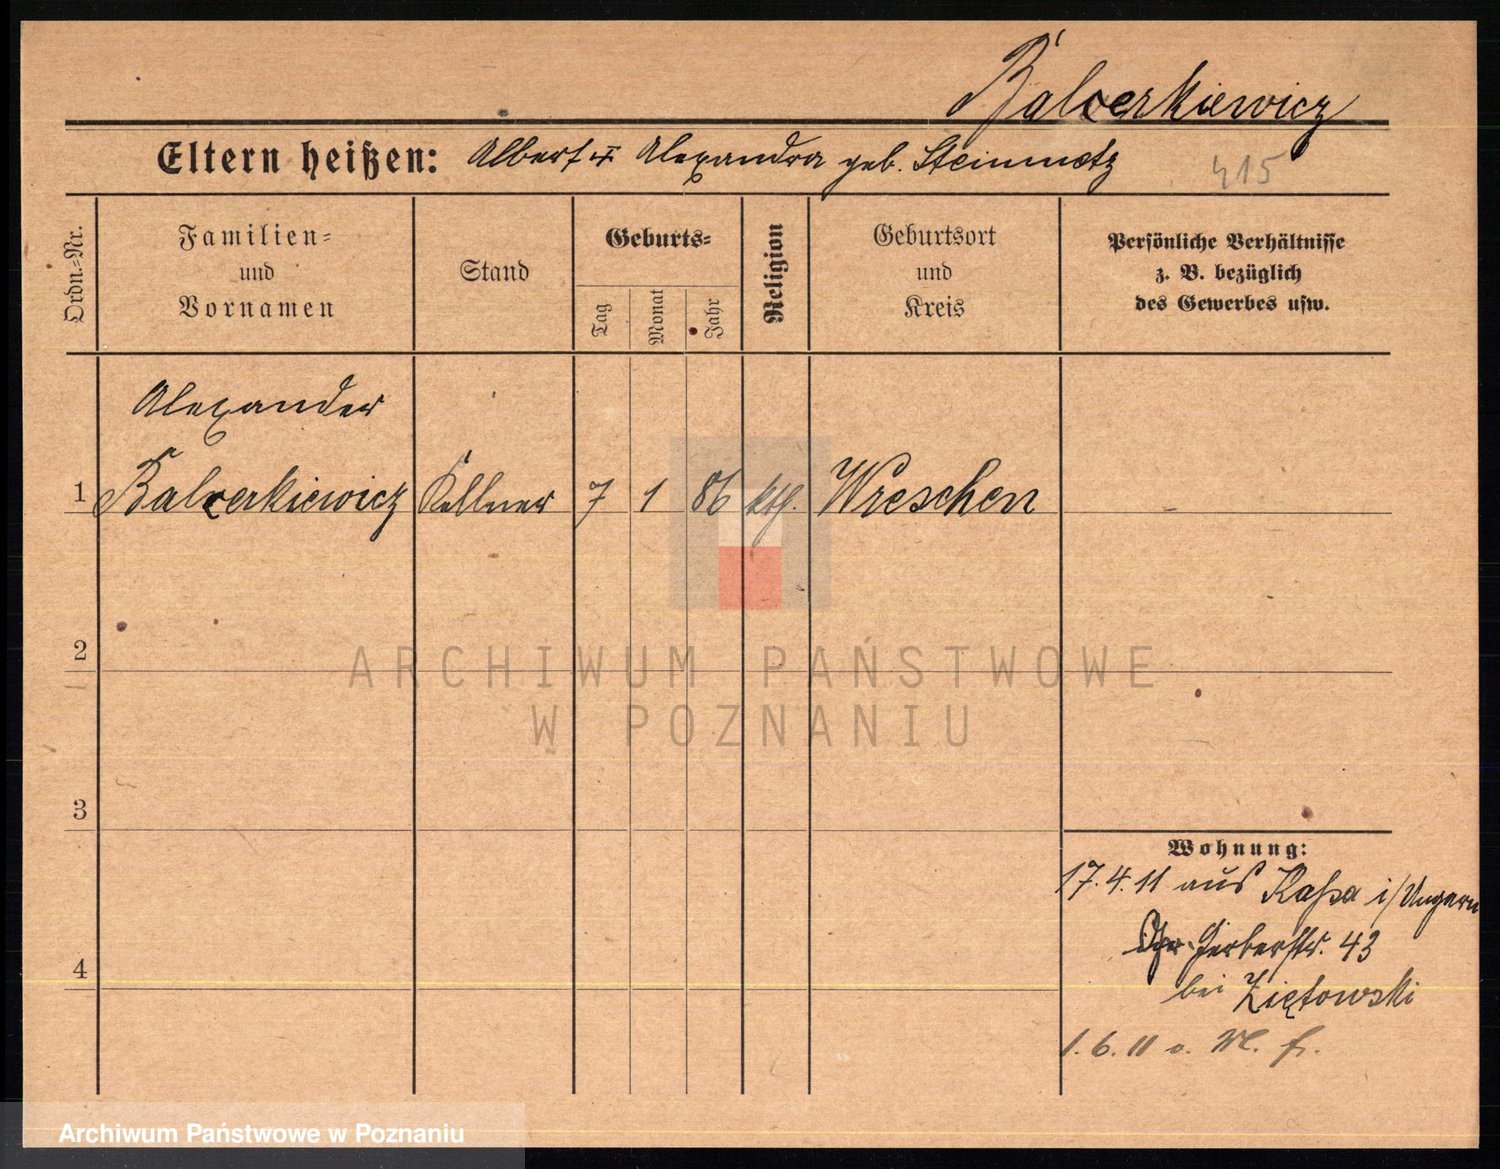 Balcerkiewicz
Eltern heißen: Albert u Alexandra geb. Steinmetz
415
Ordn.-Nr.
Familien-
und
Vornamen
Stand
Geburts-
Tag
Monat
Jahr
Religion
Geburtsort
und
Kreis
Persönliche Verhältnisse
z. B. bezüglich
des Gewerbes usw.
Alexander
1 Balcerkiewicz Kellner 7 1 86 kth. Wreschen
2
3
4
Wohnung:
17.4.11 aus Kaßa i/Ungarn
Gerberstr. 43
bei Ziętowski
1.6.11 o. M. f.
ARCHIWUM PAŃSTWOWE
W POZNANIU
Archiwum Państwowe w Poznaniu